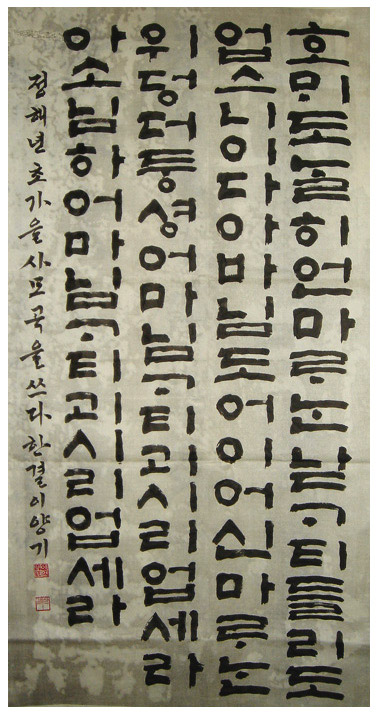 호미도ᄂᆞᆯ히언마ᄅᆞᄂᆞᆫ낟ᄀᆞ티들리도
업스니이다아바님도어이어신마ᄅᆞᄂᆞᆫ
위덩더둥셩어마님ᄀᆞ티괴시리업세라
아소님하어마님ᄀᆞ티괴시리업세라
정해년초가을사모곡을쓰다한결이양기